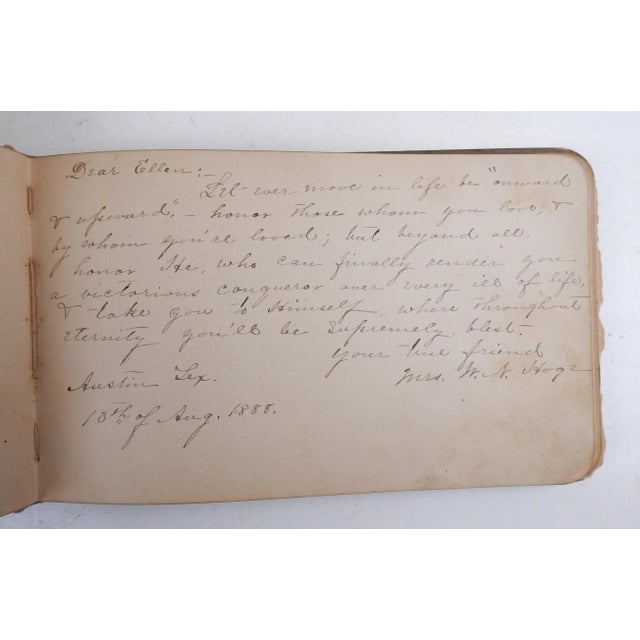 Dear Ellen:-
Let ever move in life be "onward
& upward," - honor those whom you love, &
by whom you're loved; but beyond all
honor He, who can finally render you
a victorious conqueror over every ill of life,
& take you to Himself, where throughout
eternity you'll be supremely blest.
Your true friend
Austin Tex. Mrs. W. N. Hogz
13th of Aug. 1888.